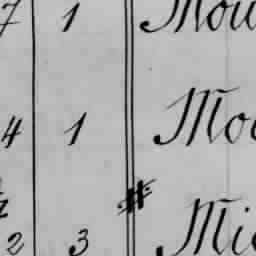 7 1 Mou
4 1 Mo
#
2 3 Mi